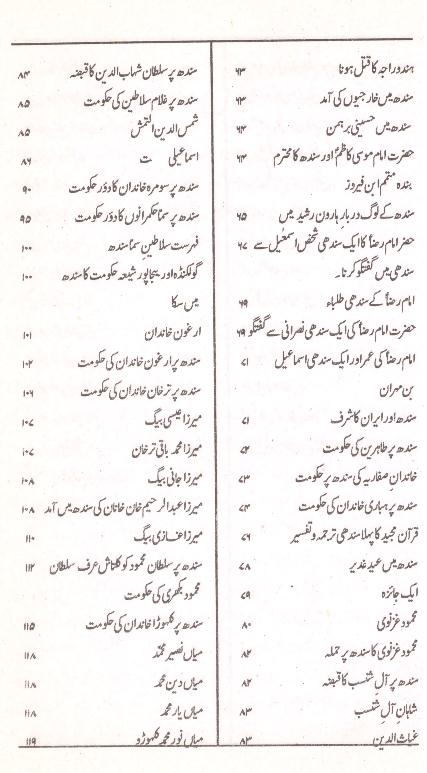 ہندو راجہ کا قتل ہونا ۶۳
سندھ میں خارجیوں کی آمد ۶۳
سندھ میں حسینی برہمن ۶۴
حضرت امام موسی کاظمؑ اور سندھ کا محترم ۶۴
بندہ متمم ابن فیروز
سندھ کے لوگ دربار ہارون رشید میں ۶۵
حضر امام رضاؑ کا ایک سندھی شخص اسمٰعیل سے ۶۷
سندھی میں گفتگو کرنا۔
امام رضاؑ کے سندھی طلباء ۶۹
حضرت امام رضاؑ کی ایک سندھی نصرانی سے گفتگو ۶۹
امام رضاؑ کی عمر اور ایک سندھی اسماعیل ۷۱
بن مہران
سندھ اور ایران کا شرف ۷۱
سندھ پر طاہرین کی حکومت ۷۲
خاندان صفاریہ کی سندھ پر حکومت ۷۳
سندھ پر ہباری خاندان کی حکومت ۷۴
قرآن مجید کا پہلا سندھی ترجمہ و تفسیر ۷۶
سندھ میں عید غدیر ۷۸
ایک جائزہ ۷۹
محمود غزنوی ۸۰
محمود غزنوی کا سندھ پر حملہ ۸۲
سندھ پر آلِ شنسب کا قبضہ ۸۲
شاہانِ آلِ شنسب ۸۳
غیاث الدین ۸۳
سندھ پر سلطان شہاب الدین کا قبضہ ۸۴
سندھ پر غلام سلاطین کی حکومت ۸۵
شمس الدین التمش ۸۵
اسماعیلی ت ۸۶
سندھ پر سومرہ خاندان کا دور حکومت ۹۰
سندھ پر سما حکمرانوں کا دور حکومت ۹۵
فہرست سلاطین سما سندھ ۱۰۰
گولکنڈہ اور بیجاپور شیعہ حکومت کا سندھ ۱۰۰
میں سکا
ارغون خاندان ۱۰۱
سندھ پر ارغون خاندان کی حکومت ۱۰۲
سندھ پر ترخان خاندان کی حکومت ۱۰۶
میرزا عیسیٰ بیگ ۱۰۷
میرزا محمد باقی ترخان ۱۰۷
میرزا جانی بیگ ۱۰۸
میرزا عبدالرحیم خان خاناں کی سندھ میں آمد ۱۰۸
میرزا غازی بیگ ۱۱۰
سندھ پر سلطان محمود کو کلتاش عرف سلطان ۱۱۲
محمود بکھری کی حکومت
سندھ پر کلہوڑا خاندان کی حکومت ۱۱۵
میاں نصیر محمد ۱۱۸
میاں دین محمد ۱۱۸
میاں یار محمد ۱۱۸
میاں نور محمد کلہوڑو ۱۱۹